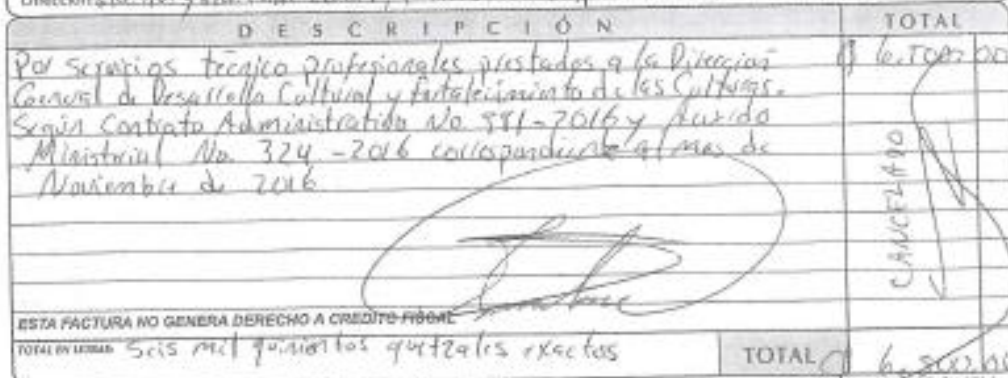 DESCRIPCIÓN TOTAL
Por servicios técnico profesionales prestados a la Dirección Q 6,500.00
General de Desarrollo Cultural y fortalecimiento de las Culturas.
Según Contrato Administrativo No. 981-2016 y Acuerdo
Ministerial No. 324-2016 correspondiente al mes de
Noviembre de 2016
CANCELADO
ESTA FACTURA NO GENERA DERECHO A CREDITO FISCAL
TOTAL EN LETRAS Seis mil quinientos quetzales exactos TOTAL Q 6,500.00